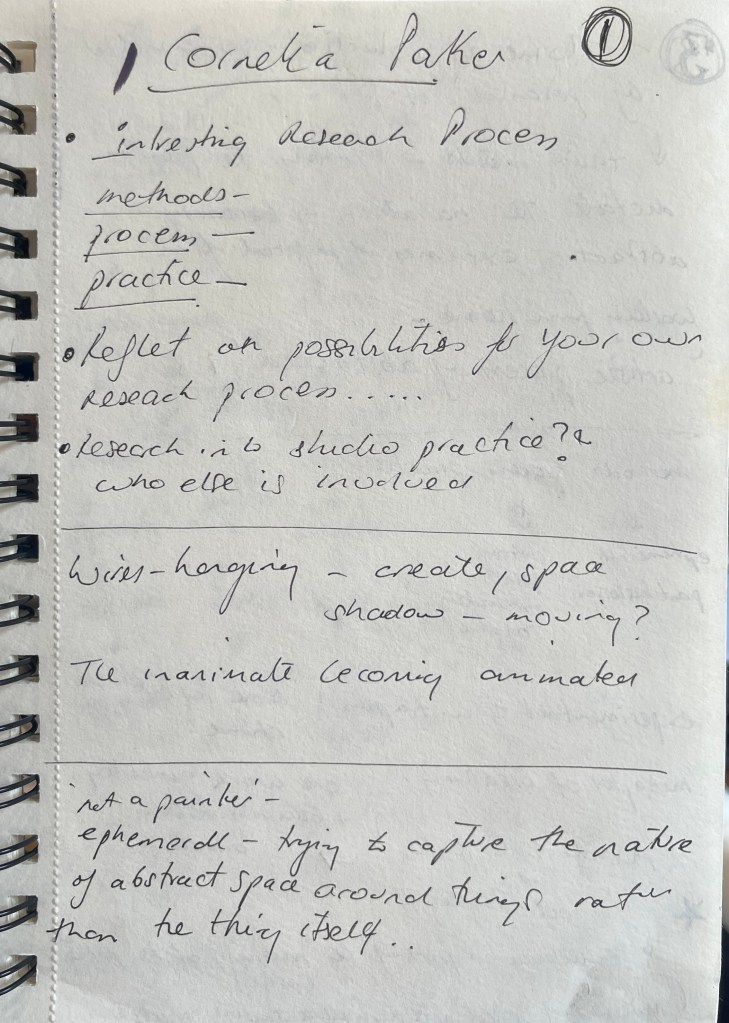 Cornelia Paker ①
• intresting Reseach Process
methods –
process –
practice –
• Reflet on possibilities for your own
reseach process.....
• Research into studio practice? &
who else is involved
Wires – hanging – create, space
shadow – moving?
The inanimate becoming animated
'not a painter' –
ephemerall – trying to capture the nature
of abstract space around things rather
than the thing itself...